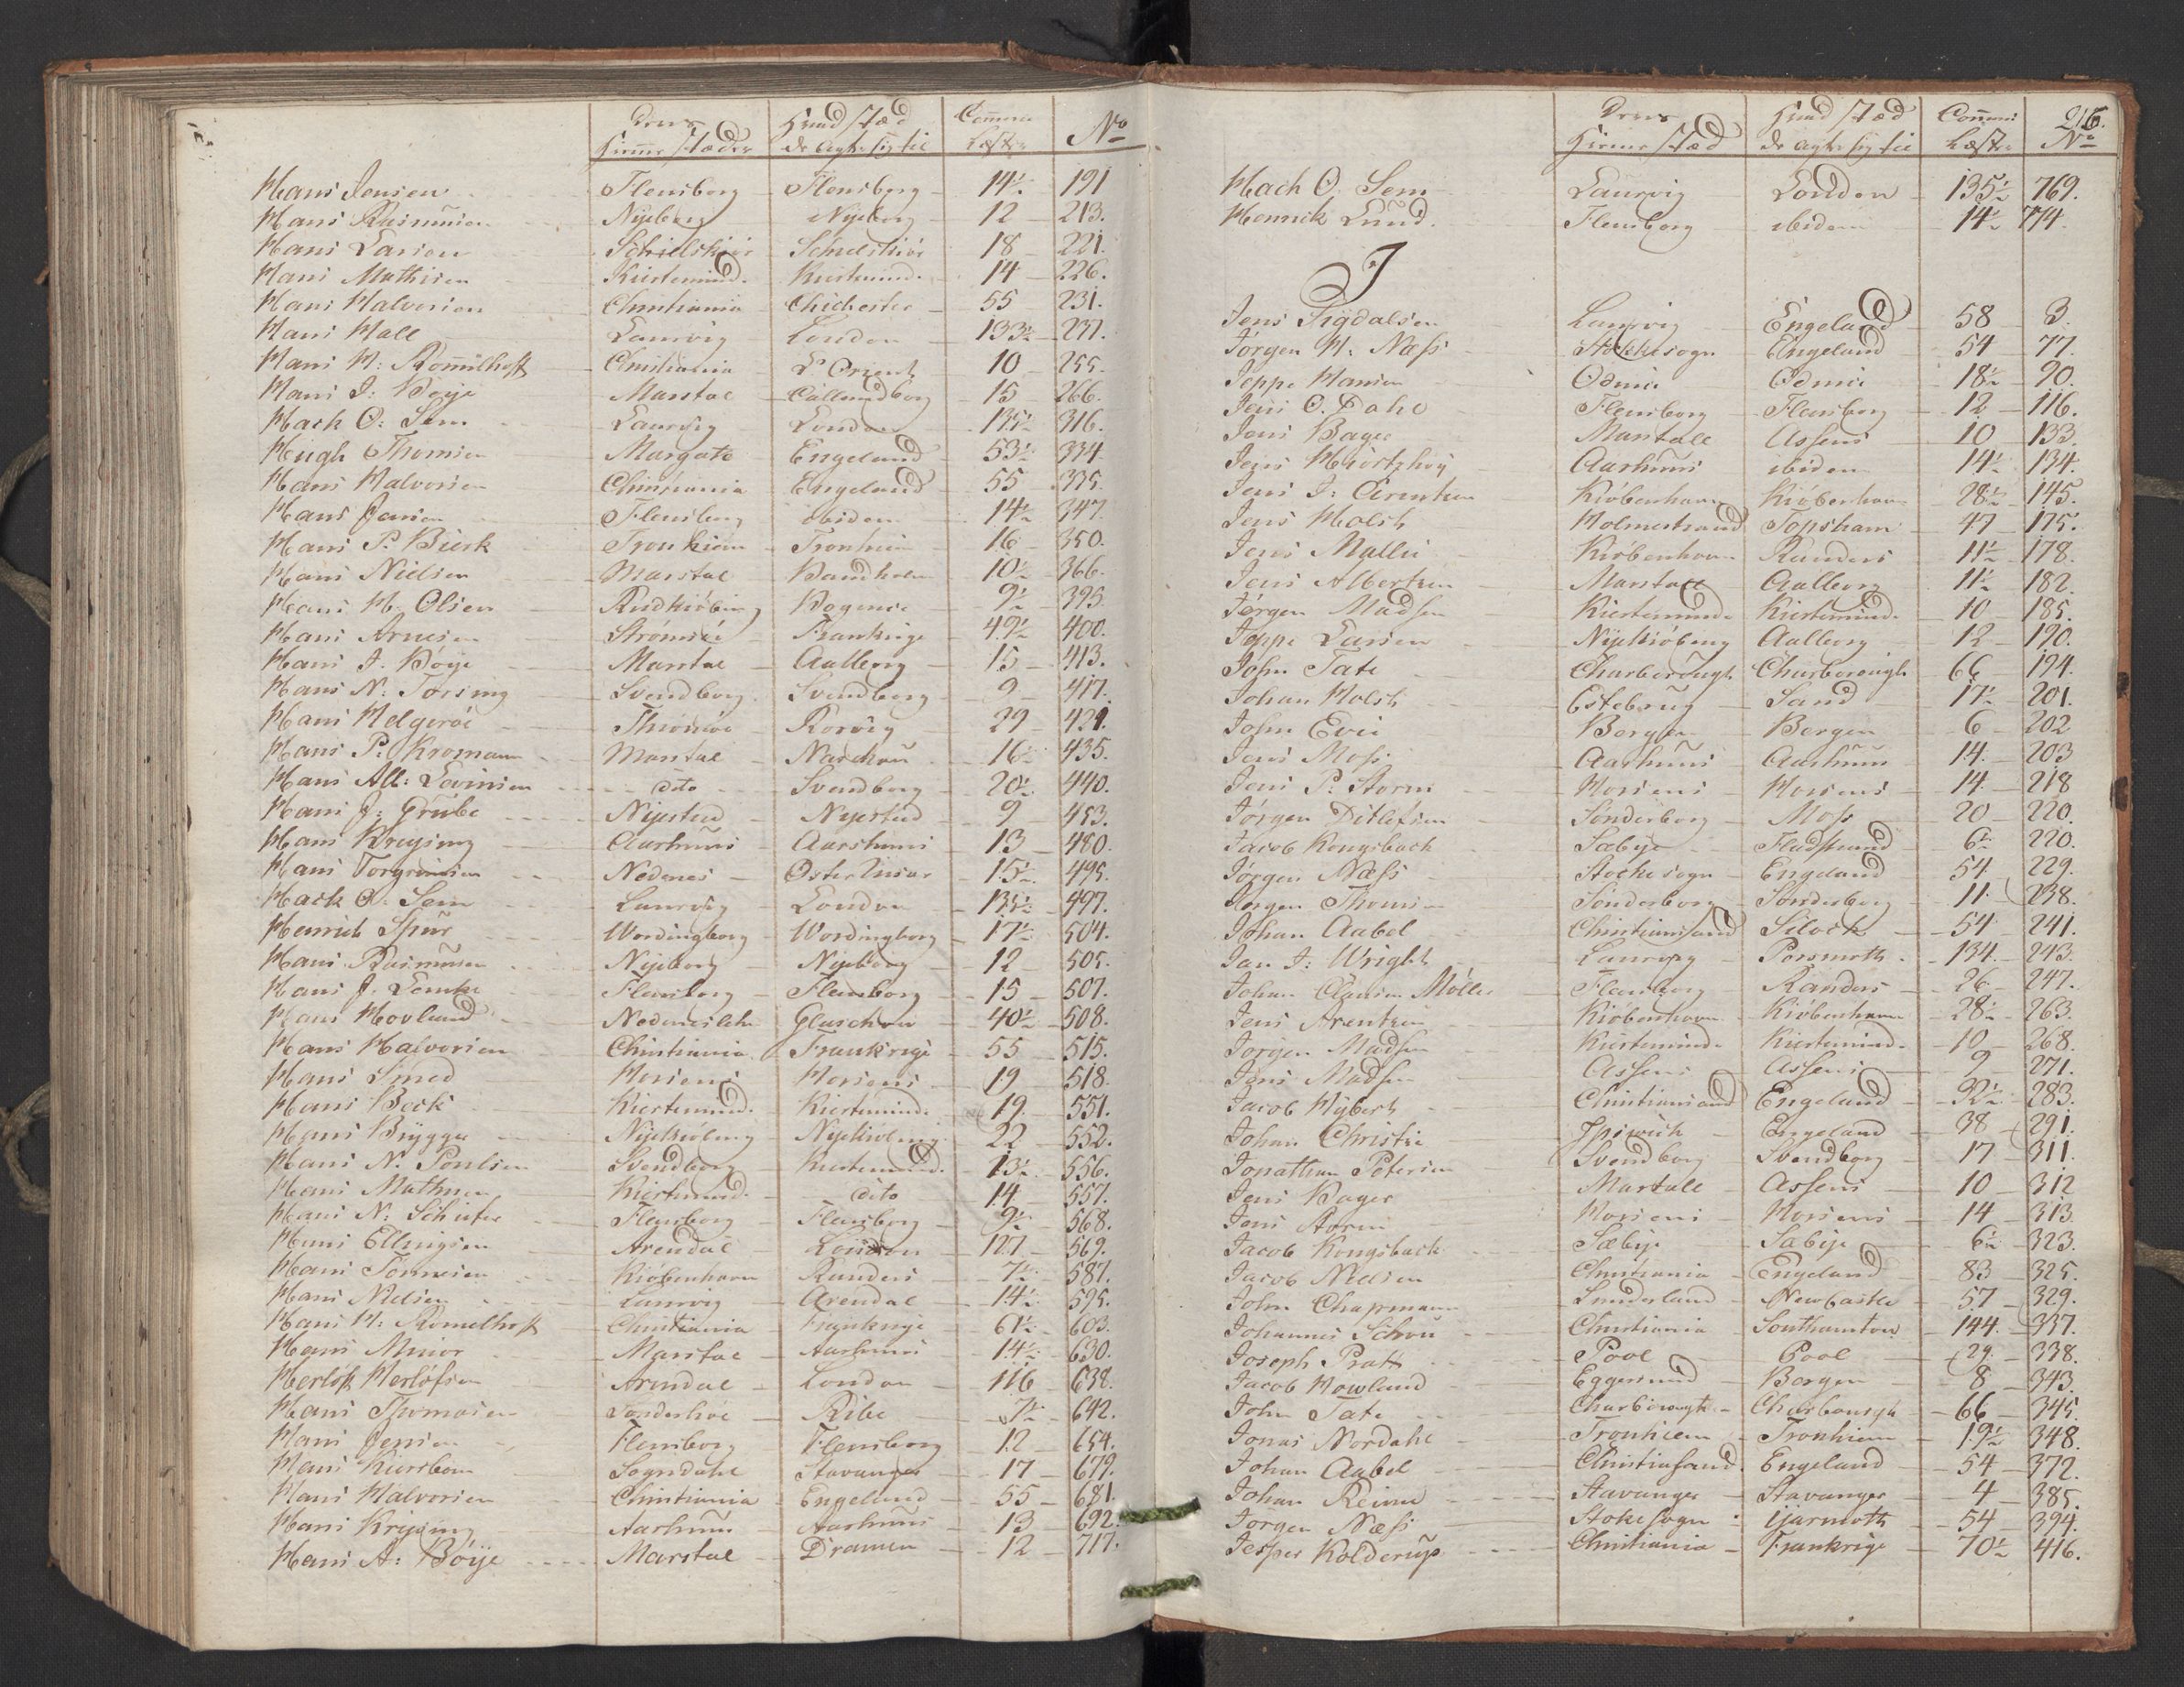 Deres Hvad Stæd Commerce No
Hiemme Stæder de agte sig til Læster
Hans Jensen Flensborg Flensborg 14½ 191
Hans Rasmusen Nyeborg Nyeborg 12 213.
Hans Larsen Schielskiør Schielskiør 18 221.
Hans Mathisen Kiertemind. Kiertemind. 14 226.
Hans Halvorsen Christiania Chichester 55 231.
Hans Hall Laurvig London 133½ 237.
Hans H: Rommelhoff Christiania L'Orient 10 255.
Hans J: Boye Marstal Callundborg 15 266.
Hack O: Sem Laurvig London 135½ 316.
Hugh Thomsen Margate Engeland 53½ 334
Hans Halvorsen Christiania Engeland 55 335.
Hans Jensen Flensborg ibidem 14½ 347.
Hans P. Bierk Tronhiem Tronhiem 16 350.
Hans Nielsen Marstal Bandholm 10½ 366.
Hans H. Olsen Rudkiøbing Bogense 9½ 395.
Hans Arnesen Strømsøe Frankrige 49½ 400.
Hans J. Bøye Marstal Aalborg 15 413.
Hans N: Torsing Svendborg Svendborg 9 417.
Hans Helgerøe Thiømøe Rorvig 29 421.
Hans P: Kromann Marstal Nackou 16½ 435.
Hans Alb: Levinsen dito Svendborg 20½ 440.
Hans J: Grube Nyested Nyested 9 453.
Hans Kreysing Aarhuus Aarhuus 13 480.
Hans Torgrimsen Nedenes Øster Riisøer 15½ 495.
Hack O: Sem Laurvig London 135½ 497.
Henrich Spur Wordingborg Wordingborg 17½ 504.
Hans Rasmusen Nyeborg Nyeborg 12 505.
Hans J. Lemke Flensborg Flensborg 15 507.
Hans Hovland Nedeneslehn Glaschow 40½ 508.
Hans Halvorsen Christiania Frankrige 55 515.
Hans Smed Horsens Horsens 19 518.
Hans Beck Kiertemind. Kiertemind. 19. 551.
Hans Brygger Nyekiøbing Nyekiøbing 22 552.
Hans N. Poulsen Svendborg Kiertemind. 13½ 556.
Hans Mathisen Kiertemind. dito 14 557.
Hans N: Schiefer Flensborg Flensborg 9½ 568.
Hans Ellingsen Arendal London 127 569.
Hans Tønnesen Kiøbenhavn Randers 7½ 587.
Hans Nielsen Laurvig Arendal 14½ 595.
Hans H: Romelhoff Christiania Frankrige 61½ 603.
Hans Minor Marstal Aarhuus 14½ 630.
Herløf Herløfsen Arendal London 116 638.
Hans Thomasen Sønderhoe Ribe 7½ 642.
Hans Jensen Flensborg Flensborg 12 654.
Hans Kiersbom Sogndahl Stavanger 17 679.
Hans Halvorsen Christiania Engelland 55 681.
Hans Krysing Aarhuus Aarhuus 13 692.
Hans A: Bøye Marstal Dramen 12 717.
216.
Deres Hvad Stæd Commerce
Hiemme Stæd de agte sig til Læster No
Hach O. Sem Laurvig London 135½ 769.
Hennik Lund. Flensborg ibidem 14½ 774.
J
Jens Sigdalsen Laurvig Engeland 58 3.
Jørgen H: Næss Stokkesogn Engeland 54 77.
Jeppe Hansen Odense Odense 18½ 90.
Jens O. Dahl Flensborg Flensborg 12 116.
Jens Bager Marstall Assens 10 133.
Jens Hiortzhøy Aarhuus ibidem 14½ 134.
Jens J: Arentzen Kiøbenhavn Kiøbenhavn 28½ 145.
Jens Holst Holmestrand Topsham 47 175.
Jens Mallie Kiøbenhavn Randers 11½ 178.
Jens Albertzen Marstall Aalborg 11½ 182.
Jørgen Madsen Kierteminde Kierteminde 10 185.
Jeppe Larsen Nyekiøbing Aalborg 12 190.
John Tate Charborough Charborough 66 194.
Johan Holst Estebrug Sand 17½ 201.
John Evie Bergen Bergen 6 202
Jens Moss Aarhuus Aarhuus 14. 203
Jens P: Storm Horsens Horsens 14 218
Jørgen Ditlefsen Sønderborg Moss 20 220.
Jacob Kongsback Sæbye Fladstrand 6½ 220.
Jørgen Næss Stocke sogn Engeland 54 229.
Jørgen Thomsen Sønderborg Sønderborg 11. 238.
Johan Aabel Christiansand Silock 54 241.
Jan J: Wright Laurvig Porsmoth. 134. 243.
Johan Clausen Møller Flensborg Randers 26 247.
Jens Arentzen Kiøbenhavn Kiøbenhavn 28½ 263.
Jørgen Madsen Kierteminde Kierteminde 10 268.
Jens Madsen Assens Assens 9 271.
Jacob Nybert Christiansand Engeland 32½ 283.
Johan Christie Ipswich Engeland 38 291.
Jonathan Petersen Svendborg Svendborg 17 311.
Jens Bager Marstall Assens 10 312
Jens Storm Horsens Horsens 14 313.
Jacob Kongsback Sæbye Sæbye 6½ 323.
Jacob Nielsen Christiania Engeland 83 325.
John Chapmann Sunderland NewCastle 57 329.
Johannes Schrøu Christiania Southamton 144. 337.
Joseph Pratt Pool Pool 29. 338.
Jacob Howland Eggersund Bergen 8 343.
John Tate Charborough Charborough 66 345.
Jonas Nordahl Tronhiem Tronhiem 19½ 348.
Johan Aabel Christiansand. Engeland 54 372.
Johan Reimer Stavanger Stavanger 4 385.
Jørgen Næss Stoke sogn Yarmoth 54 394.
Jesper Kolderup Christiania Frankrige 70½ 416.